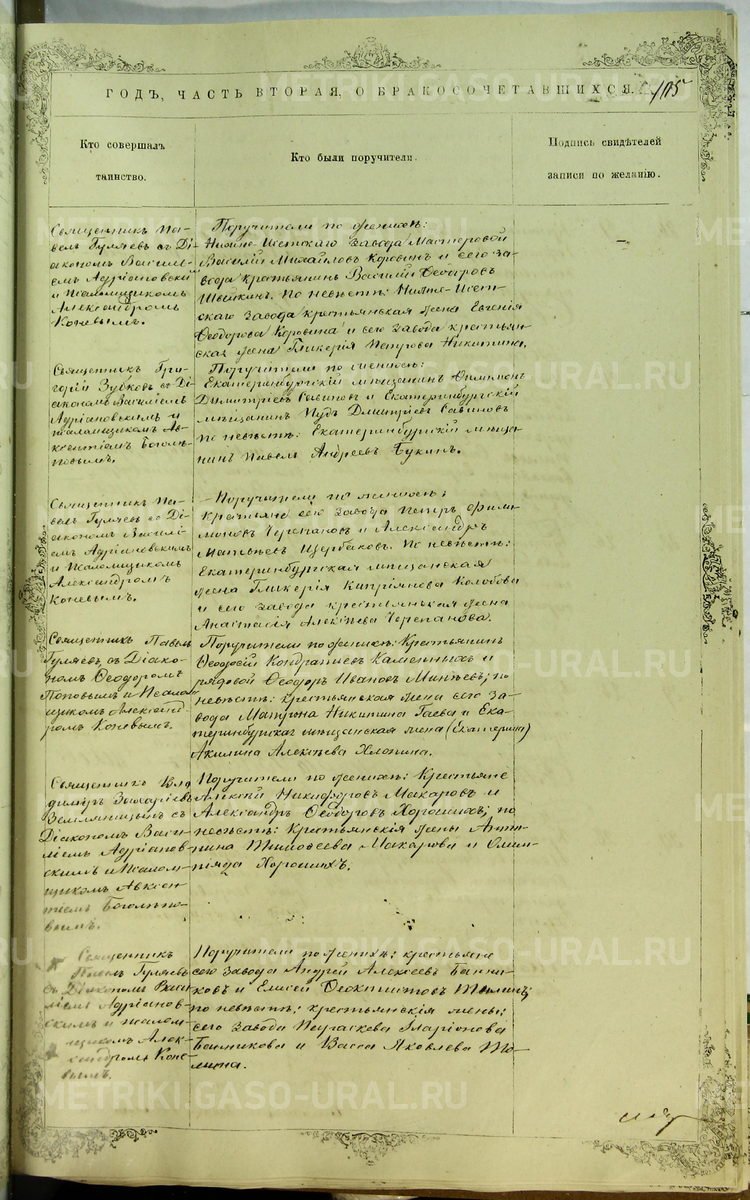 ГОДЪ, ЧАСТЬ ВТОРАЯ, О БРАКОСОЧЕТАВШИХСЯ.
105
Кто совершалъ
таинство.
Кто были поручители.
Подпись свидѣтелей
записи по желанію.
Священникъ Па-
велъ Гуляевъ съ Ді-
акономъ Василі-
емъ Адріановскимъ
и Псаломщикомъ
Александромъ
Коневымъ.
Поручители по женихѣ:
Нижне-Исетскаго завода Мастеровой
Василій Михаиловъ Коровинъ и сего за-
вода крестьянинъ Василій Ѳеодоровъ
Швейкинъ. По невѣстѣ: Нижне-Исет-
скаго завода крестьянская жена Евгенія
Ѳеодорова Коровина и сего завода крестьян-
ская жена Гликерія Петрова Никитина.
Священникъ Гри-
горій Зубковъ съ Ді-
акономъ Василіемъ
Адріановскимъ и
псаломщикомъ Ав-
ксентіемъ Боголѣ-
повымъ.
Поручители по женихѣ:
Екатеринбургскій мѣщанинъ Филимонъ
Димитріевъ Савиновъ и Екатеринбургскій
мѣщанинъ Иудъ Дмитріевъ Савиновъ
по невѣстѣ: Екатеринбургскій мѣща-
нинъ Павелъ Андреевъ Букинъ.
Священникъ Па-
велъ Гуляевъ со Ді-
акономъ Василі-
емъ Адріановскимъ
и Псаломщикомъ
Александромъ
Коневымъ.
Поручители по женихѣ:
Крестьяне сего завода Петръ Фили-
моновъ Черепановъ и Александръ
Матвѣевъ Щербаковъ. По невѣстѣ:
Екатеринбургская мѣщанская
жена Гликерія Кипріянова Колобова
и сего завода крестьянская жена
Анастасія Алексѣева Черепанова.
Священникъ Павелъ
Гуляевъ съ Діако-
номъ Ѳеодоромъ
Поповымъ и Псалом-
щикомъ Александ-
ромъ Коневымъ.
Поручители по женихѣ: Крестьянинъ
Ѳеодосій Кондратіевъ Каменныхъ и
рядовой Ѳеодоръ Ивановъ Минѣевъ; по
невѣстѣ: крестьянская жена сего за-
вода Матрона Никитина Гаева и Ека-
теринбургская мѣщанская жена (Екатерина)
Акилина Алексѣева Хлопина.
Священникъ Вла-
диміръ Захаріевъ
Земляницынъ съ
Діакономъ Васи-
ліемъ Адріанов-
скимъ и Псалом-
щикомъ Авксен-
тіемъ Боголѣпо-
вымъ.
Поручители по женихѣ: Крестьяне
Алексѣй Никифоровъ Макаровъ и
Александръ Ѳеодоровъ Хорошихъ; по
невѣстѣ: Крестьянскія жены Анто-
нина Тимоѳеева Макарова и Олим-
піяда Хорошихъ.
Священникъ
Павелъ Гуляевъ
съ Діакономъ Васи-
ліемъ Адріанов-
скимъ и псалом-
щикомъ Алек-
сандромъ Коне-
вымъ.
Поручители по женихѣ: крестьяне
сего завода Андрей Алексеевъ Банни-
ковъ и Елисей Ѳеоктистовъ
по невѣстѣ: крестьянскія жены
сего завода Параскева Иларіонова
Банникова и Васса Яковлева
METRIKI.GASO-URAL.RU